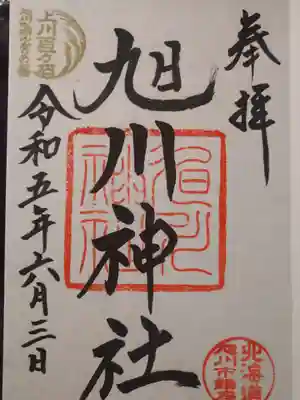 奉拝
旭川神社
令和五年六月三日
上川百万石
旭川神社
北海道
旭川市